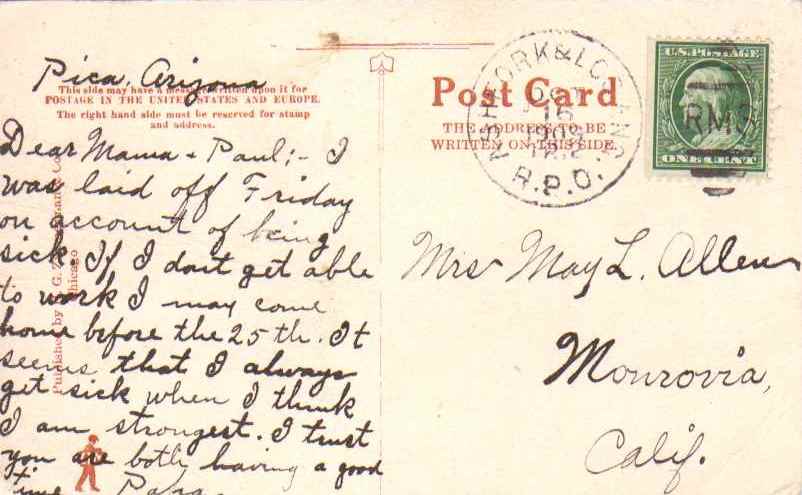 Pica, Arizona
This side may have a message written upon it for
POSTAGE IN THE UNITED STATES AND EUROPE.
The right hand side must be reserved for stamp
and address.
Dear Mama + Paul:- I
was laid off Friday
on account of being
sick. If I dont get able
to work I may come
home before the 25th. It
seems that I always
get sick when I think
I am strongest. I trust
you are both having a good
time Papa.
Published by
Chicago
Post Card
THE ADDRESS TO BE
WRITTEN ON THIS SIDE.
& LOS
R.P.O.
U.S. POSTAGE
RMS
ONE CENT
Mrs May L. Allen
Monrovia,
Calif.